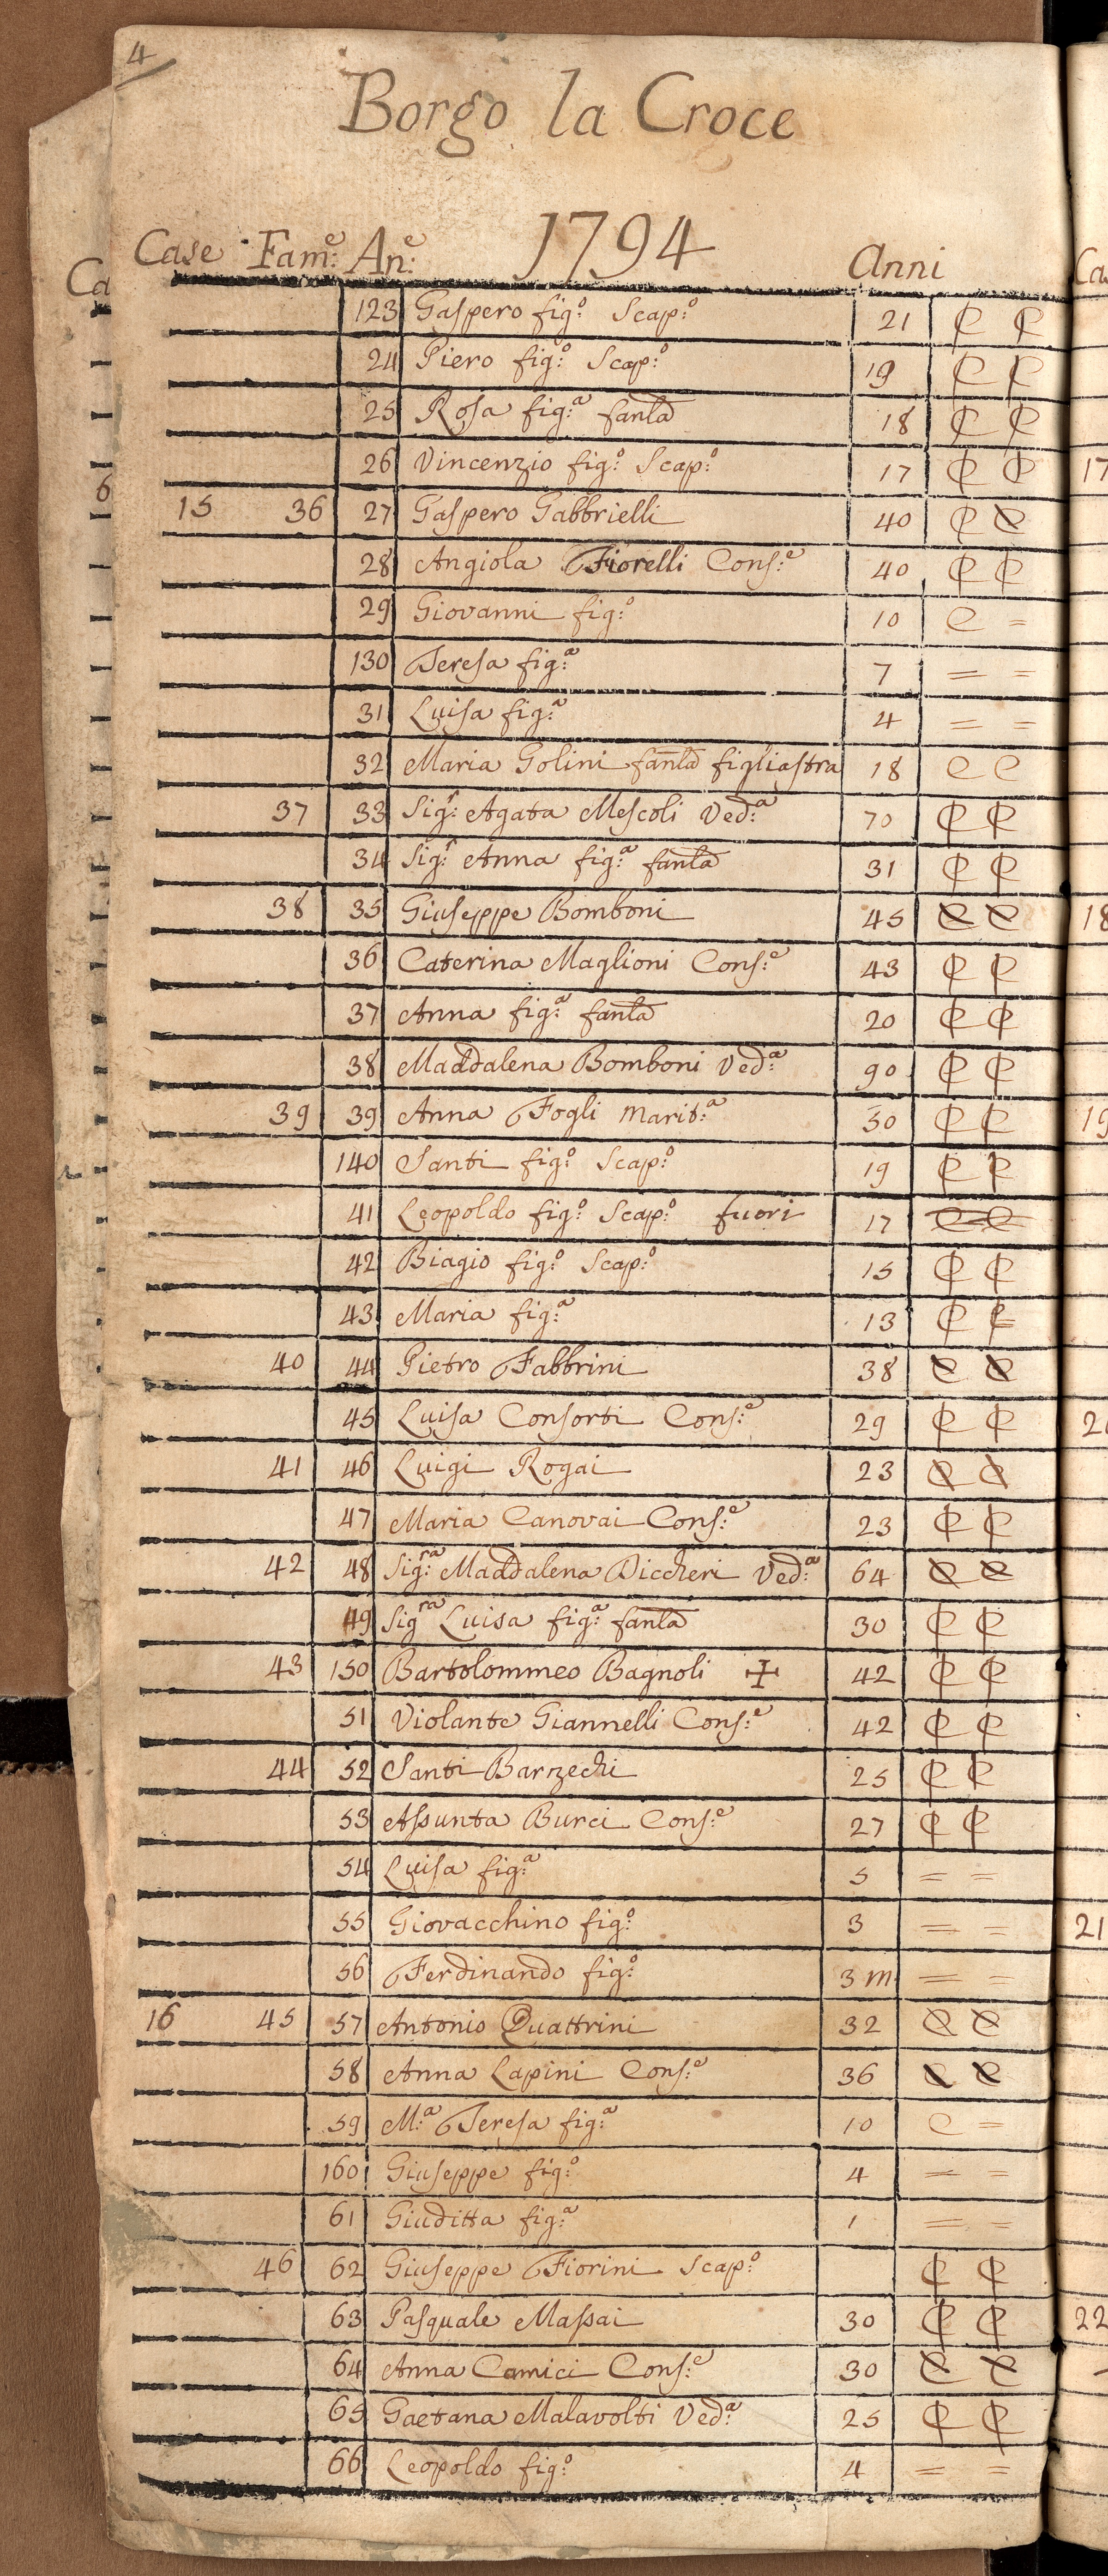 4
Borgo la Croce
1794
Case Fam:e An:e Anni
123 Gaspero fig:o Scap:o 21 C C
24 Piero fig:o Scap:o 19 C C
25 Rosa fig:a fanla 18 C C
26 Vincenzio fig:o Scap:o 17 C C
15 36 27 Gaspero Gabbrielli 40 C C
28 Angiola Fiorelli Cons:e 40 C C
29 Giovanni fig:o 10 C =
130 Teresa fig:a 7 = =
31 Luisa fig:a 4 = =
32 Maria Golini fanla figliastra 18 C C
37 33 Sig:r Agata Mescoli Ved:a 70 C C
34 Sig:r Anna fig:a fanla 31 C C
38 35 Giuseppe Bomboni 45 C C
36 Caterina Maglioni Cons:e 43 C C
37 Anna fig:a fanla 20 C C
38 Maddalena Bomboni Ved:a 90 C C
39 39 Anna Fogli Marit:a 50 C C
140 Santi fig:o Scap:o 19 C C
41 Leopoldo fig:o Scap:o fuori 17 C C
42 Biagio fig:o Scap:o 15 C C
43 Maria fig:a 13 C C
40 44 Pietro Fabbrini 38 C C
45 Luisa Consorti Cons:e 29 C C
41 46 Luigi Rogai 23 C C
47 Maria Canovai Cons:e 23 C C
42 48 Sig:ra Maddalena Diccheri Ved:a 64 C C
49 Sig:ra Luisa fig:a fanla 30 C C
43 150 Bartolommeo Bagnoli ✝ 42 C C
51 Violante Giannelli Cons:e 42 C C
44 52 Santi Barzechi 25 C C
53 Assunta Burci Cons:e 27 C C
54 Luisa fig:a 5 = =
55 Giovacchino fig:o 3 = =
56 Ferdinando fig:o 3 m = =
16 45 57 Antonio Quattrini 32 C C
58 Anna Lapini Cons:e 36 C C
59 M:a Teresa fig:a 10 C =
160 Giuseppe fig:o 4 = =
61 Giuditta fig:a 1 = =
46 62 Giuseppe Fiorini Scap:o C C
63 Pasquale Massai 30 C C
64 Anna Camici Cons:e 30 C C
65 Gaetana Malavolti Ved:a 25 C C
66 Leopoldo fig:o 4 = =